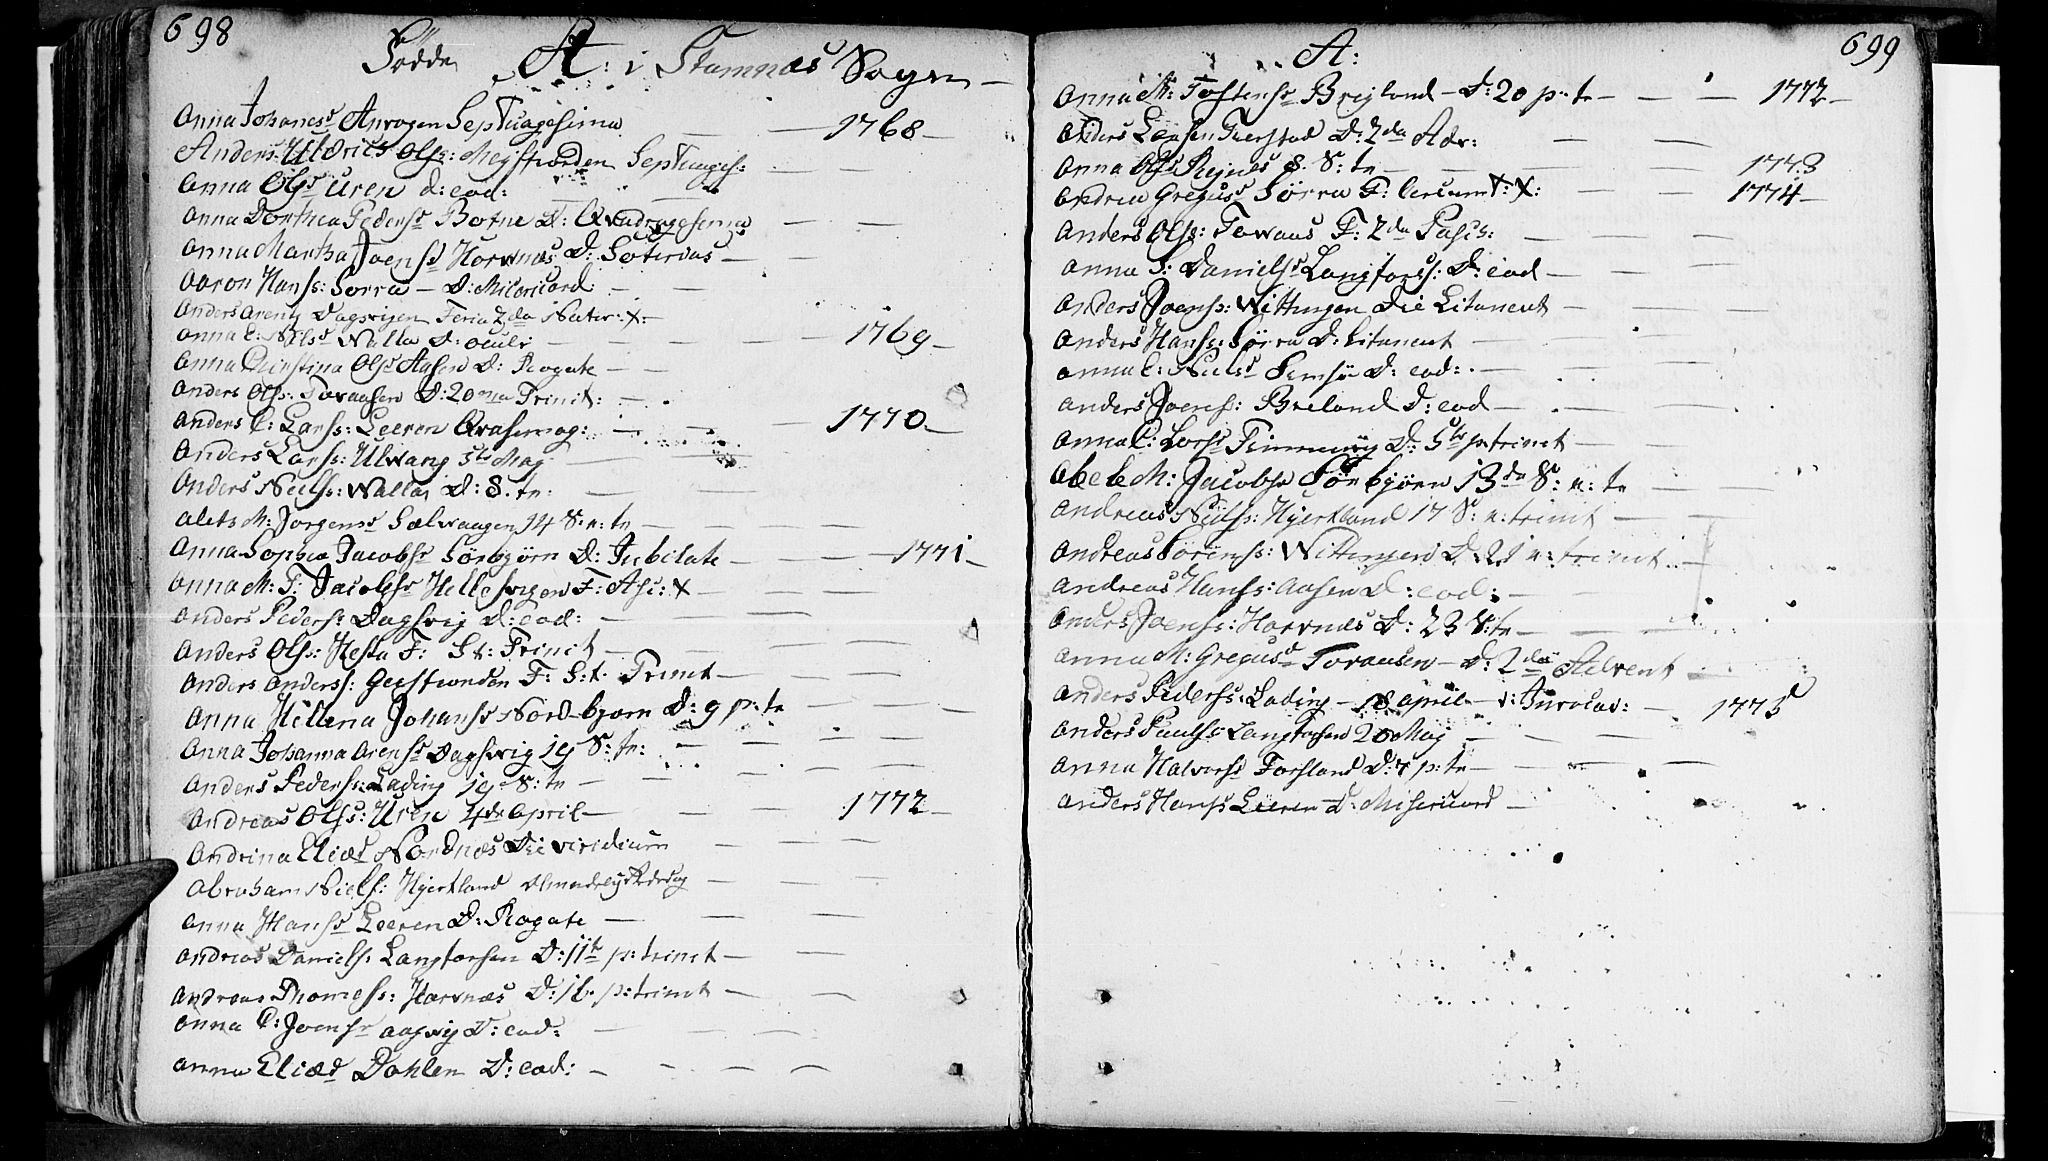 698
Fødde A: i Stamnæs Sogn
Anna Johanesd Anvogen Septuagesima — 1768 —
Anders Uldrics Ols: Mejsfiorden Septuages:
Anna Olsd Uren d: eod:
Anna Dorthea Pedersd Botne D: Qvadragesima
Anna Martha Joensd Horvnæs D: Soterdas —
Aaron Hans: Sørra — D: Misericord:
Anders Arentz Dagsvigen Feria 2da Nativ: X:
Anna C: Nilsd Walla D: oculi — 1769 —
Anna Christina Olsd Aasen D: Rogate —
Anders Ols: Toraasen D: 20ma Trinit: —
Anders C: Lars: Leeren Qvasimog: — 1770 —
Anders Lars: Ulvang 5te Maj —
Anders Niels: Walla D: 8. tr: —
Alets M: Jørgensd Sælvaagen 14 S: p: tr —
Anna Sophia Jacobsd Sørbjørn D: Jubilate — 1771 —
Anna M: T: Jacobsd Hellesvigen F: Asc: X —
Anders Peders: Dagsvig D: eod: —
Anders Ols: Hesta F: St: Trinit —
Anders Anders: Giestronden F: S:t Trinit —
Anna Helena Johansd Nordbjørn D: 9 p: tr
Anna Johanna Arensd Dagsvig 19 S: tr: —
Anders Peders: Lading 19 S: tr —
Andreas Ols: Uren 4de April — 1772 —
Andrina Eliæd Nordnæs Die viridium
Abraham Niels: Hjertland
Anna Hansd Leeren D: Rogate —
Andreas Daniels: Langforsen D: 11te p: trinit —
Andreas Thomes: Horvnæs D: 16. p: trinit —
Anna C: Joensd Aagvig D: eod: —
Anna Eliæd Dahlen D: eod: —
699
A:
Anna M: Tostensd Brejland — D: 20 p: tr — 1772 —
Anders Leersen D: 2da Adv:
Anna Olsd Rejnes 8. S: tr — 1773
Andrea Gregusd Sørra F: Circumt: X: — 1774 —
Anders Ols: Toraas F: 2da Pasch:
Anna S: Danielsd Langfors: D: eod —
Anders Joens: Wittingen Die Litanent —
Anders Hans: Sørra D: Litanent —
Anna C: Nielsd Semsø D: eod: —
Anders Joens: Breland D: eod —
Anna C: Larsd D: 5te p: trinit —
Abel M: Jacobsd Sørbjørn 13de S: p: tr
Andreas Niels: Hjertland 17 S: p: trinit —
Andreas Sørens: Wittingen D: 21 p: trinit —
Andreas Hans: Aasen D: eod: —
Anders Joens: Horvnæs D: 23 S: tr —
Anna M: Gregusd Toraasen — D: 2da Advent —
Anders Peders: Lading — 18 April — D: Invocav: — 1775
Anders Pauls: Langforsen 20 Maj —
Anna Halvorsd Forsland D: 7 p: tr —
Anders Hans Leeren D: Misericord —